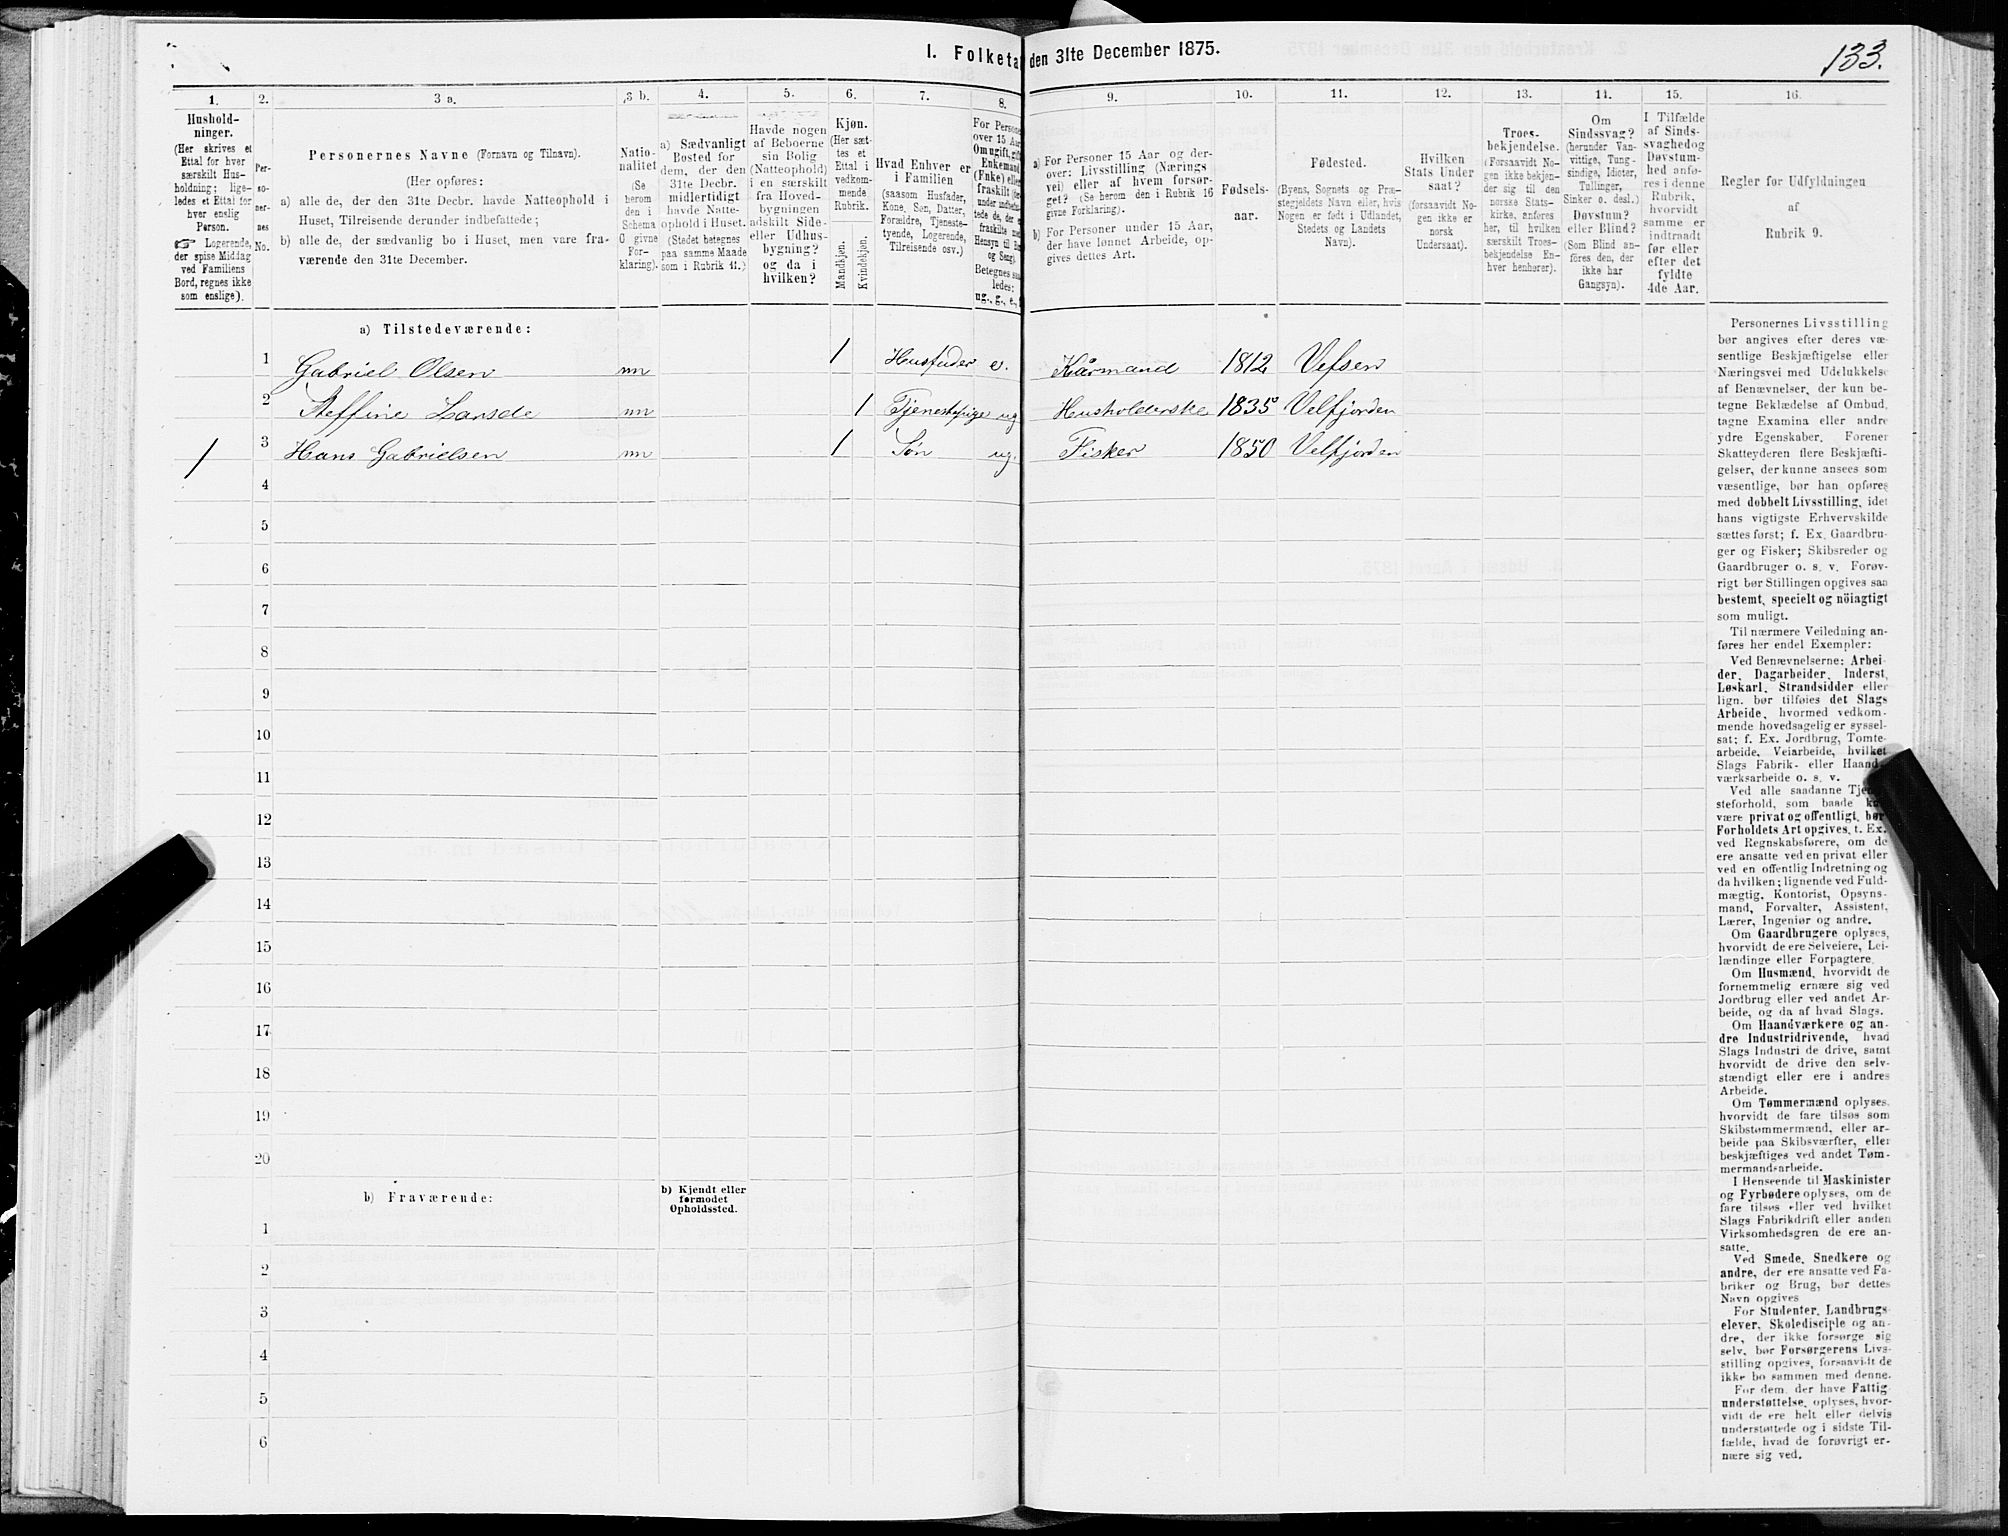 I. Folketa den 31te December 1875.
133.
1.
2.
3 a.
3 b.
4.
5.
6.
7.
8.
9.
10.
11.
12.
13.
14.
15.
16.
Hushold-
ninger.
(Her skrives et
Ettal for hver
særskilt Hus-
holdning; lige-
ledes et Ettal for
hver enslig
Person.
☞ Logerende,
der spise Middag
ved Familiens
Bord, regnes ikke
som enslige).
Per-
so-
ner-
nes
No.
Personernes Navne (Fornavn og Tilnavn).
(Her opføres:
a) alle de, der den 31te Decbr. havde Natteophold i
Huset, Tilreisende derunder indbefattede;
b) alle de, der sædvanlig bo i Huset, men vare fra-
værende den 31te December.
Natio-
nalitet
(Se
herom
den i
Schema
O givne
For-
klaring).
a) Sædvanligt
Bosted for
dem, der den
31te Decbr.
midlertidigt
havde Natte-
ophold i Huset.
(Stedet betegnes
paa samme Maade
som i Rubrik 11.)
Havde nogen
af Beboerne
sin Bolig
(Natteophold)
i en særskilt
fra Hoved-
bygningen
adskilt Side-
eller Udhus-
bygning?
og da i
hvilken?
Kjøn.
(Her sæt-
tes et
Ettal i
vedkom-
mende
Rubrik.
Mandkjøn.
Kvindekjøn.
Hvad Enhver er
i Familien
(saasom Husfader,
Kone, Søn, Datter,
Forældre, Tjeneste-
tyende, Logerende,
Tilreisende osv.)
For Persone
over 15 Aar
Om ugift, gift
Enkemand
(Enke) elle
fraskilt
under indbefat-
tede de, der e
fraskilte med
Hensyn til Bo
og Seng).
Betegnes saa
ledes:
ug., g., e.,
a) For Personer 15 Aar og der-
over: Livsstilling (Nærings
vei) eller af hvem forsør-
get? (Se herom den i Rubrik 16
givne Forklaring).
b) For Personer under 15 Aar,
der have lønnet Arbeide, op-
gives dettes Art.
Fødsels-
aar.
Fødested.
(Byens, Sognets og Præ-
stegjeldets Navn eller, hvis
Nogen er født i Udlandet,
Stedets og Landets
Navn).
Hvilken
Stats Under
saat?
(forsaavidt No-
gen ikke er
norsk
Undersaat).
Troes-
bekjendelse.
(Forsaavidt No-
gen ikke bekjen-
der sig til den
norske Stats-
kirke, anføres
her, til hvilken
særskilt Troes-
bekjendelse En-
hver henhører).
Om
Sindssvag?
(herunder Van-
vittige, Tung-
sindige, Idioter,
Tullinger,
Sinker o. desl.)
Døvstum?
eller Blind?
(Som Blind an-
føres den, der
ikke har
Gangsyn).
I Tilfælde
af Sinds-
svaghed og
Døvstum-
hed anfø-
res i denne
Rubrik,
hvorvidt
samme er
indtraadt
før eller
efter det
fyldte
4de Aar.
Regler for Udfyldningen
af
Rubrik 9.
a) Tilstedeværende:
1 Gabriel Olsen nn 1 Husfader e. Kårmand 1812 Vefsen
2 Steffine Larsdr nn 1 Tjenestepige ug Husholderske 1835 Velfjorden
1 3 Hans Gabrielsen nn 1 Søn ug. Fisker 1850 Velfjorden
4
5
6
7
8
9
10
11
12
13
14
15
16
17
18
19
20
b) Fraværende:
b) Kjendt eller
formodet
Opholdssted.
1
2
3
4
5
6
Personernes Livsstilling
bør angives efter deres væ-
sentlige Beskjæftigelse eller
Næringsvei med Udelukkelse
af Benævnelser, der kun be-
tegne Beklædelse af Ombud,
tagne Examina eller andre
ydre Egenskaber. Forener
Skatteyderen flere Beskjæfti-
gelser, der kunne ansees som
væsentlige, bør han opføres
med dobbelt Livsstilling, idet
hans vigtigste Erhvervskilde
sættes først; f. Ex. Gaardbru-
ger og Fisker; Skibsreder og
Gaardbruger o. s. v. Forøv-
rigt bør Stillingen opgives saa
bestemt, specielt og nöiagtigt
som muligt.
Til nærmere Veiledning an-
føres her endel Exempler:
Ved Benævnelserne: Arbei
der, Dagarbeider, Inderst,
Løskarl, Strandsidder eller
lign. bør tilføies det Slags
Arbeide, hvormed vedkom-
mende hovedsagelig er syssel-
sat; f. Ex. Jordbrug, Tomte-
arbeide, Veiarbeide, hvilket
Slags Fabrik- eller Haand-
værksarbeide o. s. v.
Ved alle saadanne Tjen
steforhold, som baade k
være privat og offentligt, bør
Forholdets Art opgives, t. Ex.
ved Regnskabsførere, om de
ere ansatte ved en privat eller
ved en offentlig Indretning og
da hvilken; lignende ved Fuld-
mægtig, Kontorist, Opsyns-
mand, Forvalter, Assistent,
Lærer, Ingeniør og andre.
Om Gaardbrugere oplyses,
hvorvidt de ere Selveiere, Lei-
lændinge eller Forpagtere.
Om Husmænd, hvorvidt de
fornemmelig ernære sig ved
Jordbrug eller ved andet Ar-
beide, og da af hvad Slags.
Om Haandværkere og an-
dre Industridrivende, hvad
Slags Industri de drive, samt
hvorvidt de drive den selv-
stændigt eller ere i andres
Arbeide.
Om Tømmermænd oplyses,
hvorvidt de fare tilsøs som
Skibstømmermænd, eller ar-
beide paa Skibsværfter, eller
beskjæftiges ved andet Tøm-
mermandsarbeide.
I Henseende til Maskinister
og Fyrbødere oplyses, om de
fare tilsøs eller ved hvilket
Slags Fabrikdrift eller anden
Virksomhedsgren de ere an-
satte.
Ved Smede, Snedkere og
andre, der ere ansatte ved Fa-
briker og Brug, bør dettes
Navn opgives
For Studenter, Landbrugs-
elever, Skoledisciple og an-
dre, der ikke forsørge sig
selv, bør Forsørgerens Livs-
stilling opgives, forsaavidt de
ikke bo sammen med denne.
For dem, der have Fattig
understøttelse, oplyses, hvor-
vidt de ere helt eller delvis
understøttede og i sidste Til-
fælde, hvad de forøvrigt er-
nære sig ved.